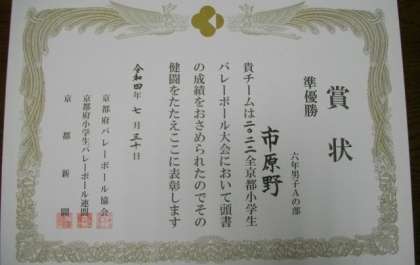 賞状
準優勝
六年男子Aの部
市原野
貴チームは二〇二二全京都小学生
バレーボール大会において頭書
の成績をおさめられたのでその
健闘をたたえここに表彰します
令和四年七月三十日
京都府バレーボール協会
京都府小学生バレーボール連盟
京都新聞